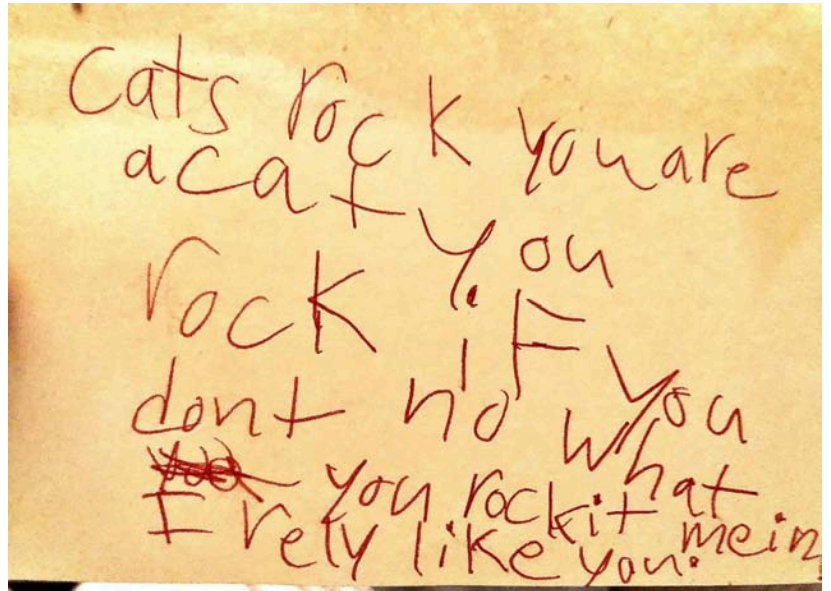 cats rock you are
a cat you
rock if you
dont no what
you rock it mein
I rely like you.